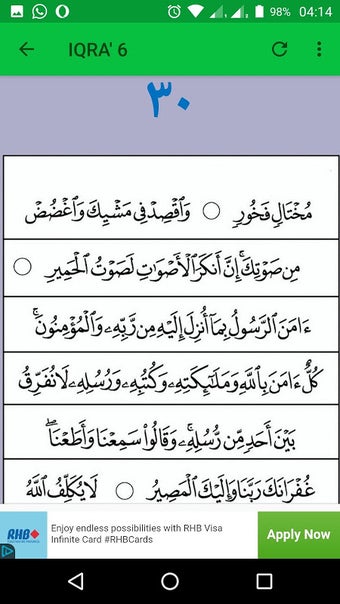 98% 04:14
IQRA' 6
٣٠
مُخْتَالٍ فَخُورٍ ○ وَٱقْصِدْ فِى مَشْيِكَ وَٱغْضُضْ
مِن صَوْتِكَ ۚ إِنَّ أَنكَرَ ٱلْأَصْوَاتِ لَصَوْتُ ٱلْحَمِيرِ ○
ءَامَنَ ٱلرَّسُولُ بِمَآ أُنزِلَ إِلَيْهِ مِن رَّبِّهِۦ وَٱلْمُؤْمِنُونَ ۚ
كُلٌّ ءَامَنَ بِٱللَّهِ وَمَلَـٰٓئِكَتِهِۦ وَكُتُبِهِۦ وَرُسُلِهِۦ لَا نُفَرِّقُ
بَيْنَ أَحَدٍ مِّن رُّسُلِهِۦ ۚ وَقَالُوا۟ سَمِعْنَا وَأَطَعْنَا ۖ
غُفْرَانَكَ رَبَّنَا وَإِلَيْكَ ٱلْمَصِيرُ ○ لَا يُكَلِّفُ ٱللَّهُ
RHB
Enjoy endless possibilities with RHB Visa
Infinite Card #RHBCards
Apply Now